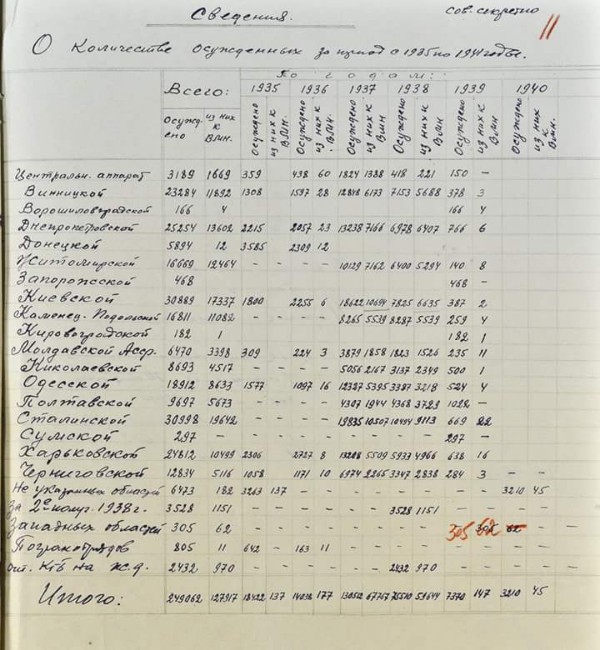 Сведения.
Сов. секретно
11
О количестве осужденных за период с 1935 по 1941 годы.
Всего: По годам:
1935 1936 1937 1938 1939 1940
Осуждено из них к ВМН. Осуждено из них к ВМН. Осуждено из них к ВМН. Осуждено из них к ВМН Осуждено из них к ВМН Осуждено из них к ВМН. Осуждено из них к ВМН.
Центральн. аппарат 3189 1669 359 438 60 1824 1388 418 221 150 –
Винницкой 23284 11892 1308 1597 28 12848 6173 7153 5688 378 3
Ворошиловградской 166 4 166 4
Днепропетровской 25254 13602 2215 2057 23 13238 7166 6978 6407 766 6
Донецкой 5894 12 3585 2309 12
Житомирской 16669 12464 – – – – 10129 7162 6400 5294 140 8
Запорожской 468 468 –
Киевской 30889 17337 1800 2255 6 18622 10694 7825 6635 387 2
Каменец. Подольской 16811 11082 – – – – 8265 5539 8287 5539 259 4
Кировоградской 182 1 182 1
Молдавской Асср. 6470 3398 309 224 3 3879 1858 1823 1526 235 11
Николаевской 8693 4517 – – – – 5056 2167 3137 2349 500 1
Одесской 18912 8633 1577 1097 16 12327 5395 3387 3218 524 4
Полтавской 9697 5673 – – – – 4307 1944 4368 3729 1022 –
Сталинской 30998 19642 – – – – 19835 10507 10494 9113 669 22
Сумской 297 – – – – – – – – – 297 –
Харьковской 24812 10499 2306 2727 8 13208 5509 5933 4966 638 16
Черниговской 12834 5116 1058 1171 10 6974 2265 3347 2838 284 3 – –
Не указанных областей 6473 182 3263 137 – – – – – – – – 3210 45
За 2е полуг. 1938 г. 3528 1151 – – – – – – 3528 1151 – – – –
Западных областей 305 62 – – – – – – – – 305 62 305 62
Погранотрядов 805 11 642 – 163 11 – – – – – – – –
от. КГБ на ж.д. 2432 970 – – – – – – 2432 970 – – – –
Итого: 249062 127917 18422 137 14038 177 67767 59644 7370 147 3210 45